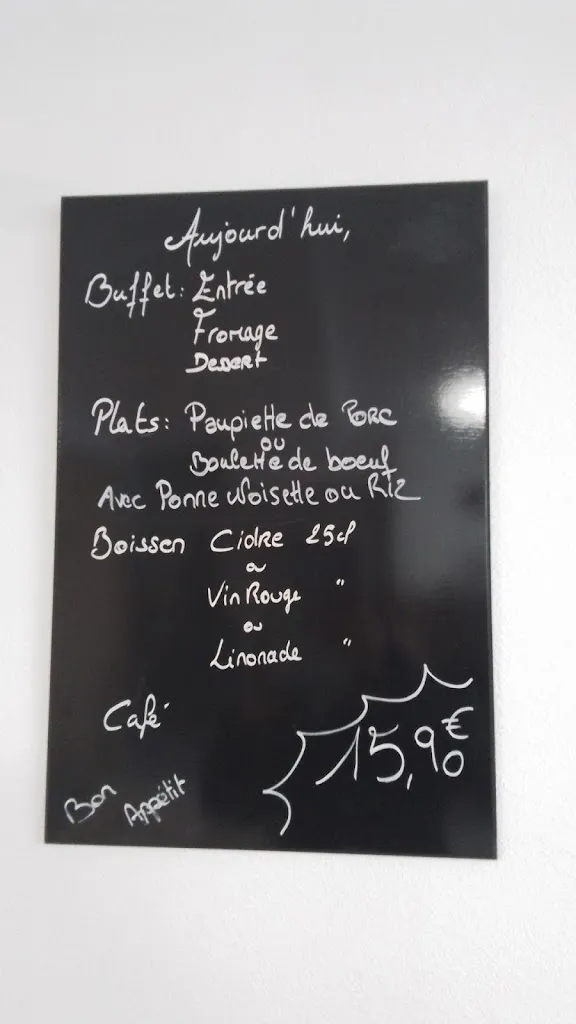 Aujourd'hui,
Buffet: Entrée
Fromage
Dessert
Plats: Paupiette de Porc
ou
Boulette de boeuf
Avec Pomme Noisette ou Riz
Boisson Cidre 25cl
ou
Vin Rouge "
ou
Limonade "
Café
15,90€
Bon Appétit